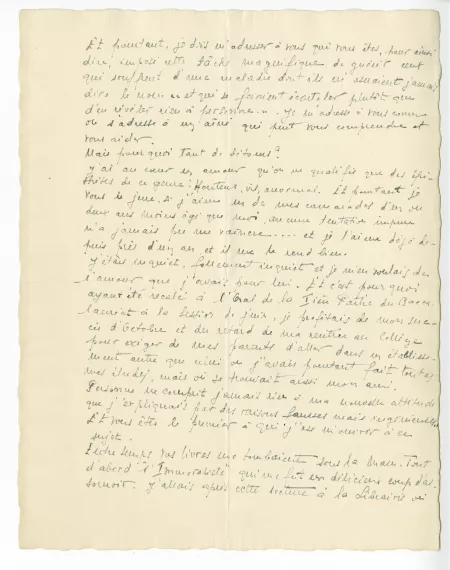 Et pourtant, je dois m'adresser à vous qui vous êtes, pour ainsi
dire, imposé cette tâche magnifique de guérir ceux
qui souffrent d'une maladie dont ils n'osent jamais
dire le nom et qui se feraient écarteler plutôt que
d'en révéler rien à personne.... Je m'adresse à vous comme
on s'adresse à un ami qui peut vous comprendre et
vous aider.
Mais pourquoi tant de détours?
J'ai au cœur un amour qu'on ne qualifie que des épi-
thètes de ce genre: Honteux, vil, anormal. Et pourtant je
vous le jure, si j'aime un de mes camarades d'un ou
deux ans moins âgé que moi, aucune tentation impure
n'a jamais pu me vaincre..... et je l'aime déjà de-
puis près d'un an et il me le rend bien.
J'étais inquiet, follement inquiet et je m'en voulais de
l'amour que j'avais pour lui. Et c'est pourquoi
ayant été recalé à l'Oral de la 1ère Partie du Bacca-
lauréat à la session de juin, je profitais de mon suc-
cès d'octobre et du retard de ma rentrée au Collège
pour exiger de mes parents d'aller dans un établisse-
ment autre que celui où j'avais pourtant fait toutes
mes études, mais où se trouvait aussi mon ami.
Personne ne comprit jamais rien à ma nouvelle attitude
que j'expliquais par des raisons fausses mais ingénieuses
Et vous êtes le premier à qui j'ose m'ouvrir à ce
sujet.
Entre temps vos livres me tombaient sous la main. Tout
d'abord "l'Immoraliste" qui me fit un délicieux coup d'as-
sommoir. J'allais après cette lecture à la Librairie où